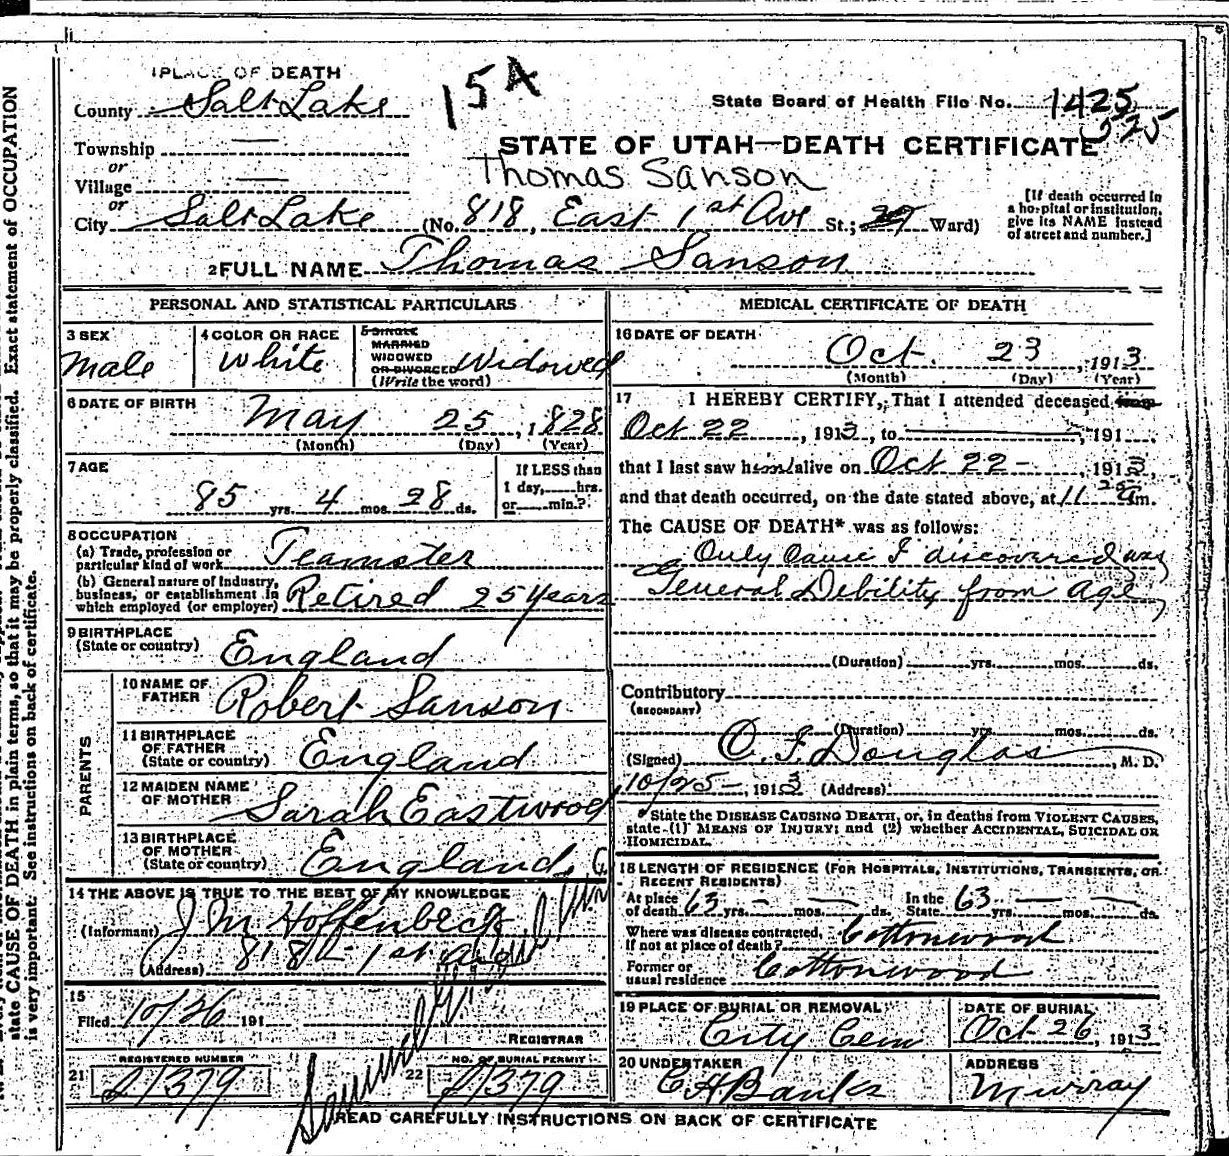 1 PLACE OF DEATH
15A
State Board of Health File No. 1425
County Salt Lake
Township —
STATE OF UTAH—DEATH CERTIFICATE
or
Village —
Thomas Sanson
or
City Salt Lake (No. 818, East 1st Ave St.; Ward)
[If death occurred in
a hospital or institution,
give its NAME instead
of street and number.]
2 FULL NAME Thomas Sanson
PERSONAL AND STATISTICAL PARTICULARS
3 SEX
Male
4 COLOR OR RACE
White
5 SINGLE
MARRIED
WIDOWED
OR DIVORCED
(Write the word)
Widowed
6 DATE OF BIRTH
May 25, 1828
(Month) (Day) (Year)
7 AGE
85 yrs. 4 mos. 28 ds.
If LESS than
1 day, hrs.
or min.?
8 OCCUPATION
(a) Trade, profession or
particular kind of work Teamster
(b) General nature of Industry,
business, or establishment in
which employed (or employer) Retired 25 years
9 BIRTHPLACE
(State or country) England
PARENTS
10 NAME OF
FATHER Robert Sanson
11 BIRTHPLACE
OF FATHER
(State or country) England
12 MAIDEN NAME
OF MOTHER Sarah Eastwood
13 BIRTHPLACE
OF MOTHER
(State or country) England
14 THE ABOVE IS TRUE TO THE BEST OF MY KNOWLEDGE
(Informant) J M Hoffenbeck
(Address) 818 E 1st Ave
15
Filed 10/26 191
REGISTRAR
REGISTERED NUMBER
21 21379
NO. OF BURIAL PERMIT
22 21379
MEDICAL CERTIFICATE OF DEATH
16 DATE OF DEATH
Oct. 23, 1913
(Month) (Day) (Year)
17 I HEREBY CERTIFY, That I attended deceased from
Oct 22, 1913, to —, 191
that I last saw him alive on Oct 22 —, 1913,
and that death occurred, on the date stated above, at 11 am.
The CAUSE OF DEATH* was as follows:
Only Cause I discovered was
General Debility from Age
(Duration) yrs. mos. ds.
Contributory
(SECONDARY)
(Duration) yrs. mos. ds.
(Signed) O. F. Douglas, M. D.
10/25 —, 1913 (Address)
*State the DISEASE CAUSING DEATH, or, in deaths from VIOLENT CAUSES,
state (1) MEANS OF INJURY; and (2) whether ACCIDENTAL, SUICIDAL OR
HOMICIDAL.
18 LENGTH OF RESIDENCE (FOR HOSPITALS, INSTITUTIONS, TRANSIENTS, OR
RECENT RESIDENTS)
At place
of death 63 yrs. — mos. — ds.
In the
State 63 yrs. — mos. — ds.
Where was disease contracted,
if not at place of death? Cottonwood
Former or
usual residence Cottonwood
19 PLACE OF BURIAL OR REMOVAL
City Cem
DATE OF BURIAL
Oct 26, 1913
20 UNDERTAKER
E A Banks
ADDRESS
Murray
READ CAREFULLY INSTRUCTIONS ON BACK OF CERTIFICATE
state CAUSE OF DEATH in plain terms, so that it may be properly classified. Exact statement of OCCUPATION
is very important. See instructions on back of certificate.